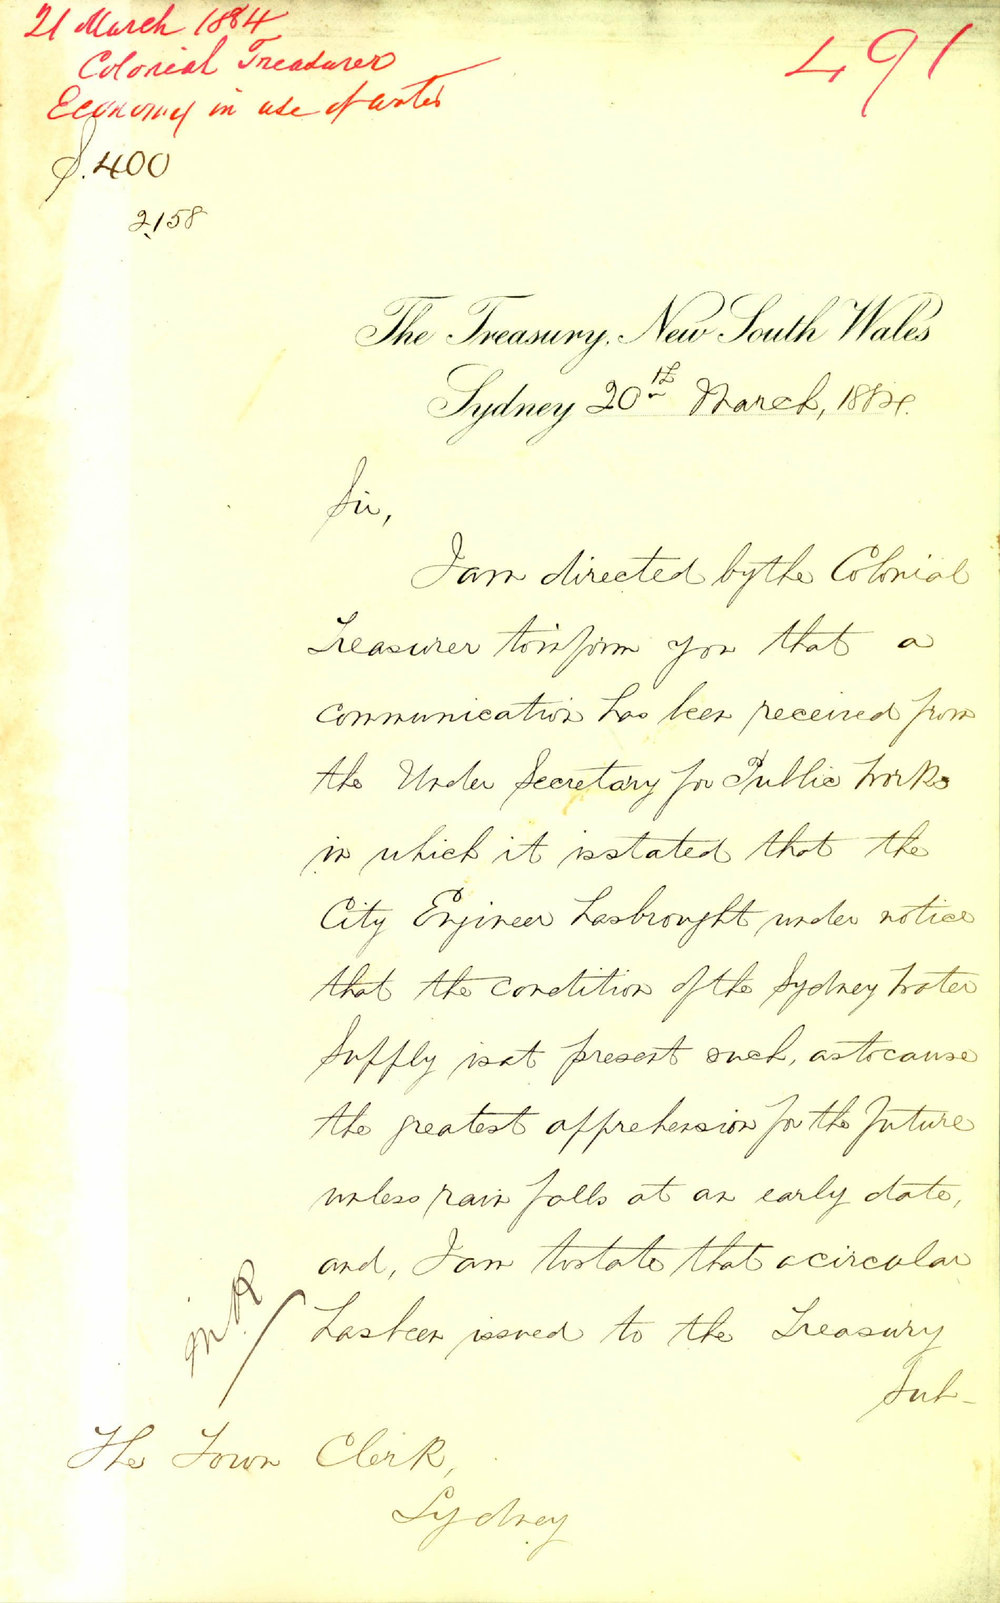 21 March 1884
Colonial Treasurer
Economy in use of water
491
S.400
2158
The Treasury, New South Wales
Sydney 20th March, 1884.
Sir,
I am directed by the Colonial
Treasurer to inform you that a
communication has been received from
the Under Secretary for Public Works
in which it is stated that the
City Engineer has brought under notice
that the condition of the Sydney Water
Supply is at present such, as to cause
the greatest apprehension for the future
unless rain falls at an early date,
and, I am to state that a circular
has been issued to the Treasury
Sub-
M.R
The Town Clerk,
Sydney